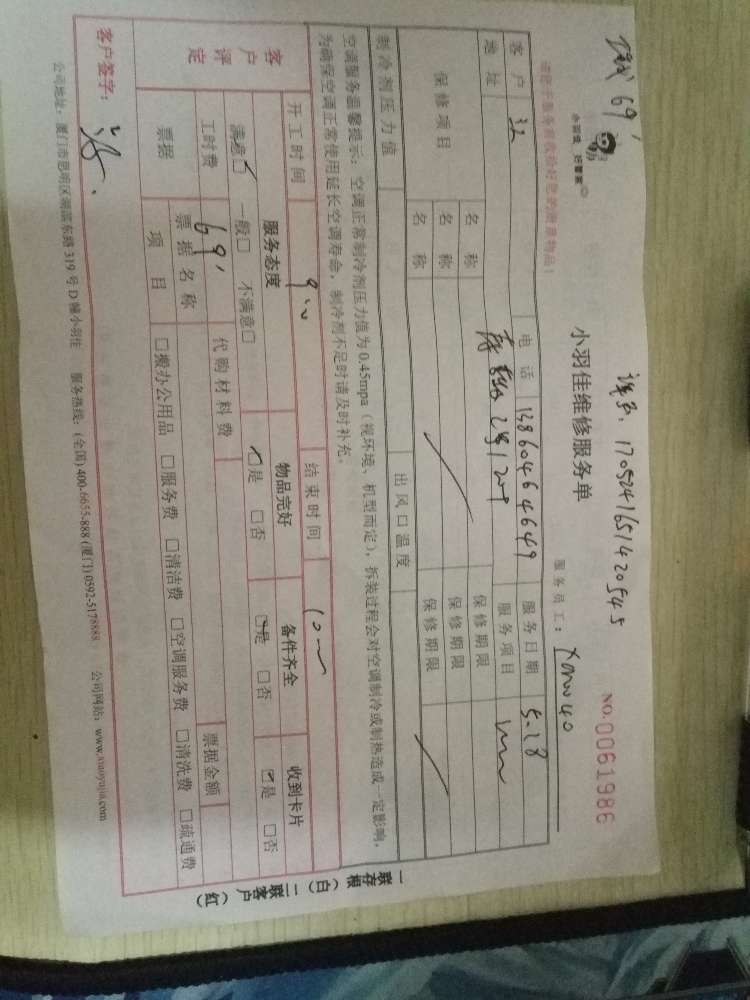 69'
课名: 170524165142054S
小羽佳 好管家
请您开服务前收拾好您的贵重物品!
小羽佳维修服务单
NO.0061986
服务员工:
客户 电话 13860464649 服务日期 5.28
地址 2号1200 服务项目
保修项目 名称 保修期限
名称 保修期限
名称 保修期限
制冷剂压力值 出风口温度
空调服务温馨提示: 空调正常制冷剂压力值为0.45mpa(视环境、机型而定), 拆装过程会对空调制冷或制热造成一定影响,
为确保空调正常使用延长空调寿命, 制冷剂不足时请及时补充。
开工时间 9:00 结束时间 10:00
客户评定 服务态度 物品完好 备件齐全 收到卡片
满意☑ 一般□ 不满意□ ☑是 □否 ☑是 □否 ☑是 □否
工时费 69' 代购材料费
票据 票据名称 票据金额
项目 □搬办公用品 □服务费 □清洁费 □空调服务费 □清洗费 □疏通费
客户签字:
公司地址: 厦门市思明区湖滨东路319号D幢小羽佳 服务热线: (全国)400-6655-888 (厦门)0592-5178888 公司网站: www.xiaoyujia.com
一联存根(白) 二联客户(红)